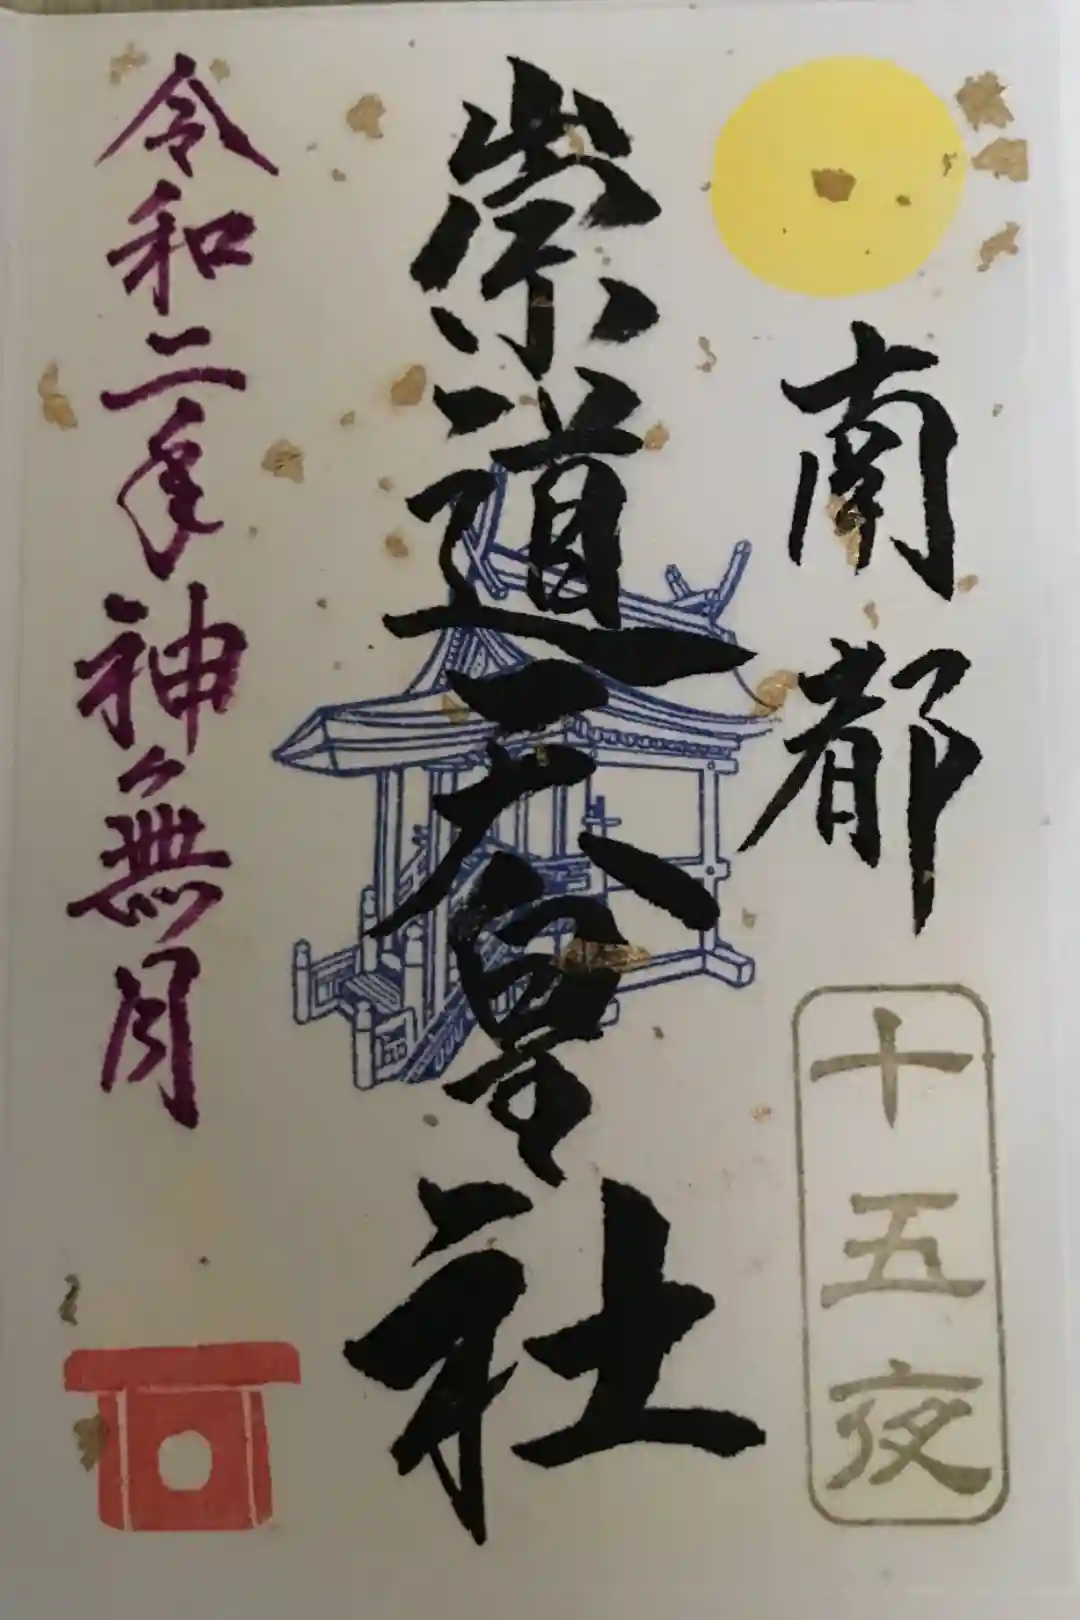 南都
十五夜
崇道天皇社
令和二年神無月